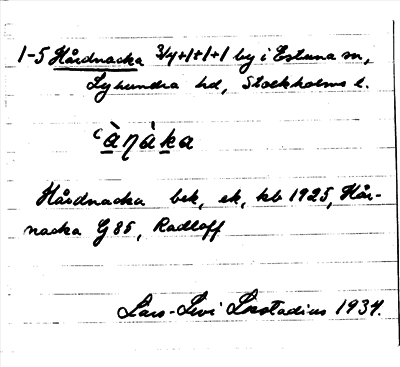 1-5 Hårdnacka 3/4+1+1+1 by i Estuna sn,
Lyhundra hd, Stockholms l.
Hårdnacka bek, ek, kb 1925, Hår-
nacka G 85, Radloff
Lars-Levi Læstadius 1934.